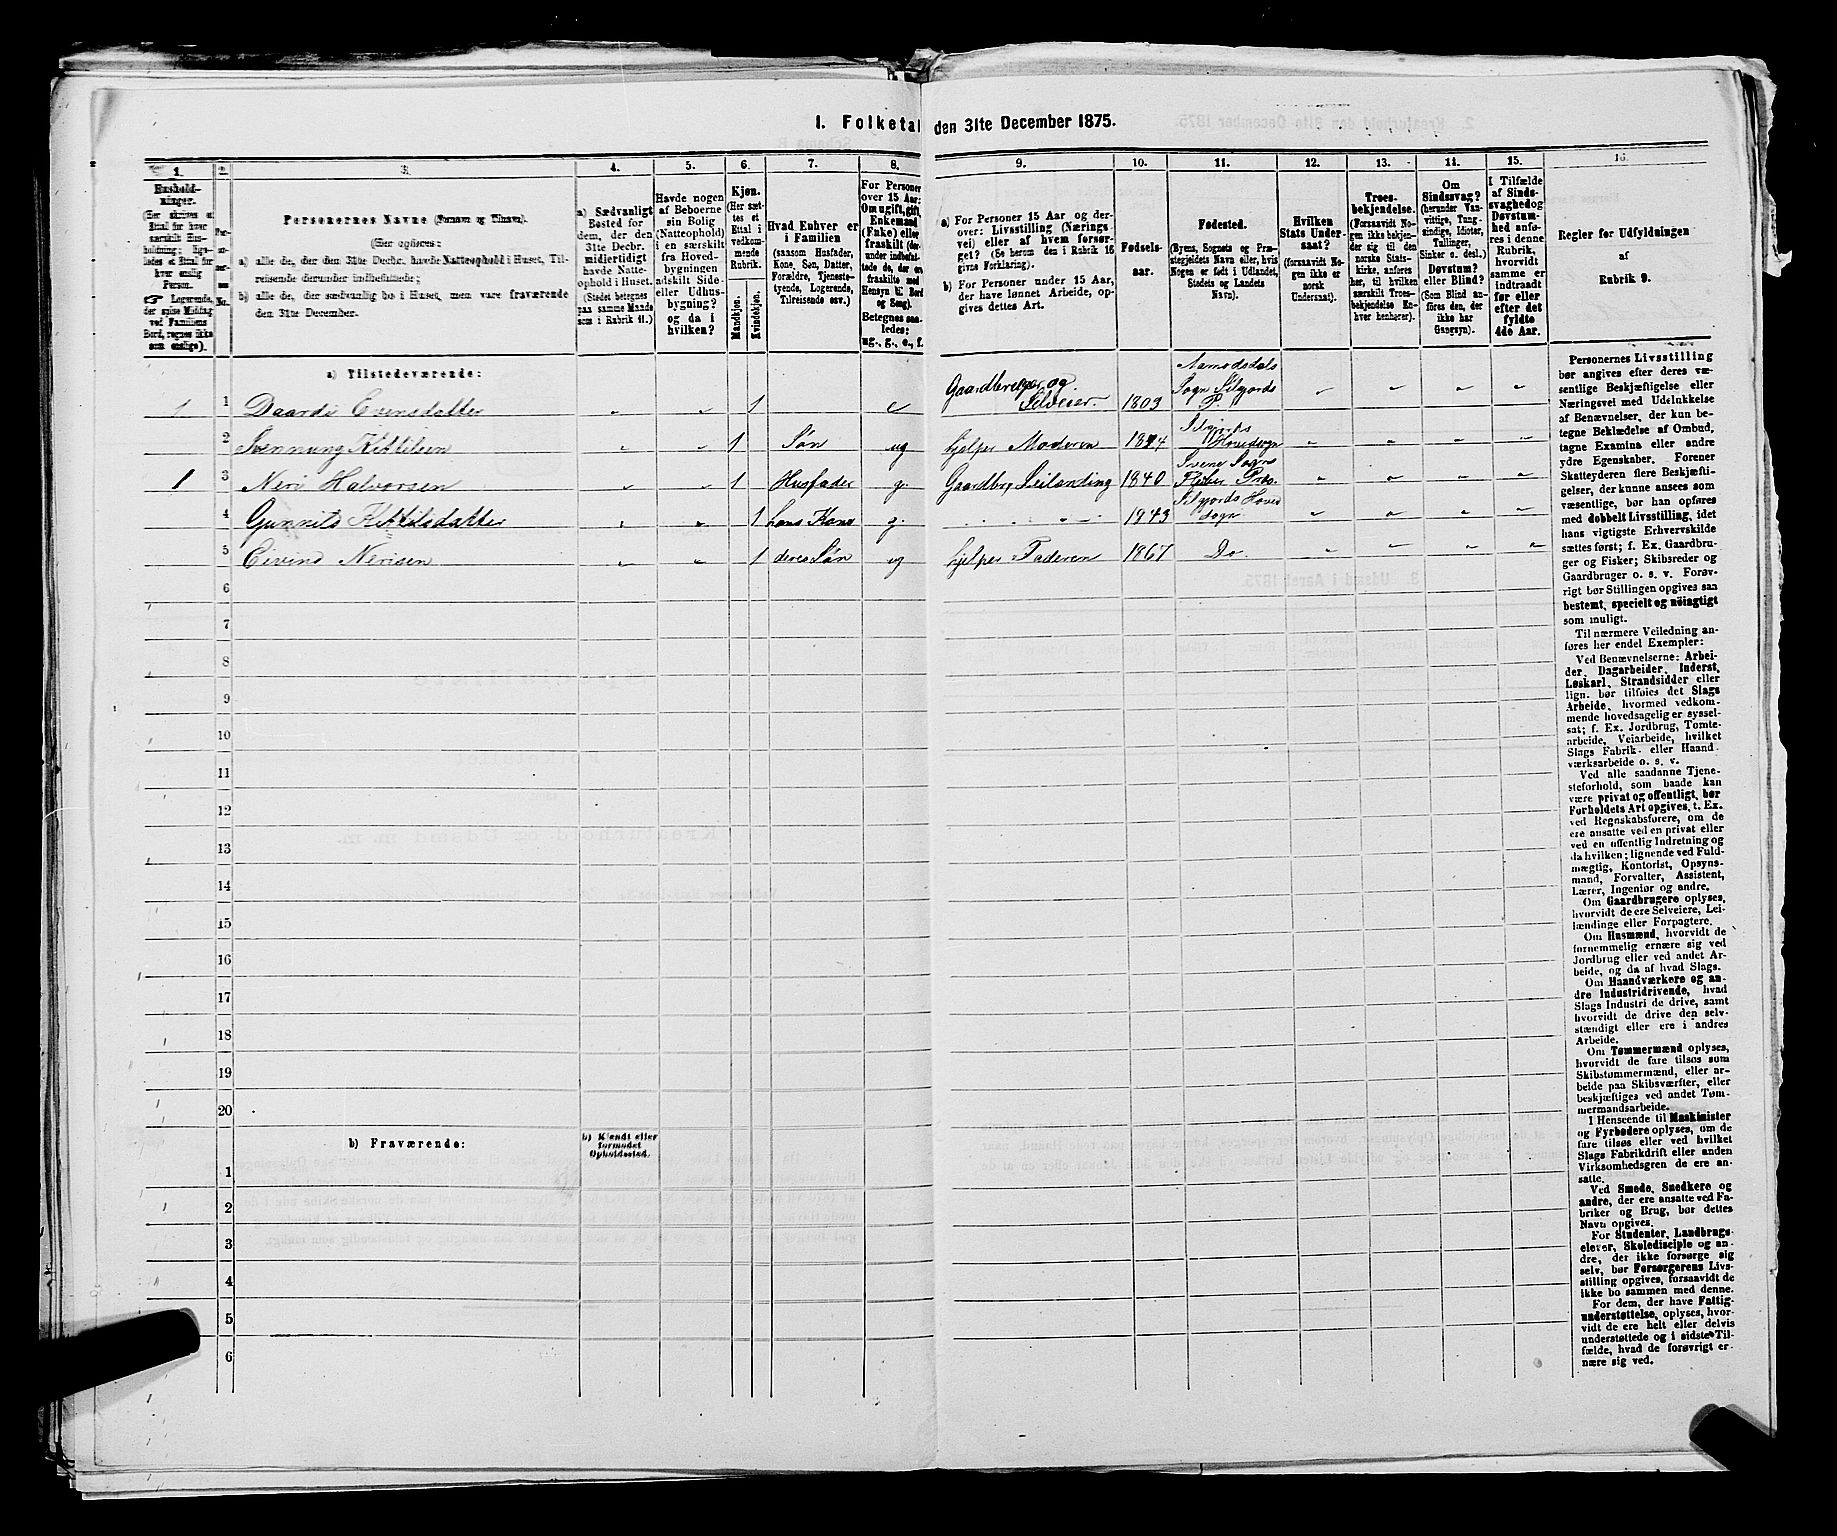 I. Folketal den 31te December 1875.
1.
2.
3.
4.
5.
6.
7.
8.
9.
10.
11.
12.
13.
14.
15.
16.
Hushold-
ninger.
(Her skrives et
Ettal for hver
særskilt Hus-
holdning; lige-
ledes et Ettal for
hver enslig
Person.
☞ Logerende,
der spise Middag
ved Familiens
Bord, regnes ikke
som enslige).
Personernes Navne (Fornavn og Tilnavn).
(Her opføres:
a) alle de, der den 31te Decbr. havde Natteophold i Huset, Til-
reisende derunder indbefattede;
b) alle de, der sædvanlig bo i Huset, men vare fraværende
den 31te December.
a) Sædvanligt
Bosted for
dem, der den
31te Decbr.
midlertidigt
havde Natte-
ophold i Huset.
(Stedet betegnes
paa samme Maade
som i Rubrik 11.)
Havde nogen
af Beboerne
sin Bolig
(Natteophold)
i en særskilt
fra Hoved-
bygningen
adskilt Side-
eller Udhus-
bygning?
og da i
hvilken?
Kjøn.
(Her sæt-
tes et
Ettal i
vedkom-
mende
Rubrik.
Mandkjøn.
Kvindekjøn.
Hvad Enhver er
i Familien
(saasom Husfader,
Kone, Søn, Datter,
Forældre, Tjeneste-
tyende, Logerende,
Tilreisende osv.)
For Personer
over 15 Aar:
Om ugift, gift,
Enkemand
(Enke) eller
fraskilt (der-
under indbefat-
tede de, der ere
fraskilte med
Hensyn til Bord
og Seng).
Betegnes saa-
ledes:
ug., g., e., f.
a) For Personer 15 Aar og der-
over: Livsstilling (Nærings-
vei) eller af hvem forsør-
get? (Se herom den i Rubrik 16
givne Forklaring).
b) For Personer under 15 Aar,
der have lønnet Arbeide, op-
gives dettes Art.
Fødsels-
aar.
Fødested.
(Byens, Sognets og Præ-
stegjeldets Navn eller, hvis
Nogen er født i Udlandet,
Stedets og Landets
Navn).
Hvilken
Stats Under-
saat?
(forsaavidt No-
gen ikke er
norsk
Undersaat).
Troes-
bekjendelse.
(Forsaavidt No-
gen ikke bekjen-
der sig til den
norske Stats-
kirke, anføres
her, til hvilken
særskilt Troes-
bekjendelse En-
hver henhører).
Om
Sindssvag?
(herunder Van-
vittige, Tung-
sindige, Idioter,
Tullinger,
Sinker o. desl.)
Døvstum?
eller Blind?
(Som Blind an-
føres den, der
ikke har
Gangsyn).
I Tilfælde
af Sinds-
svaghed og
Døvstum-
hed anfø-
res i denne
Rubrik,
hvorvidt
samme er
indtraadt
før eller
efter det
fyldte
4de Aar.
Regler for Udfyldningen
af
Rubrik 9.
a) Tilstedeværende:
1 1 Daardi Evensdatter „ „ 1 e Gaardbruger og Selveier. 1803 Aamodsdals Sogn Silgjords P. „ „ „ „
2 Svennung Kittilsen „ „ 1 Søn ug hjelper Moderen Silgjords Hovedsogn „ „ „ „
1 3 Neri Halvorsen „ „ 1 Husfader g. Gaardbr. Leilending 1840 Sogn „ „ „ „
4 Gunnild Kittilsdatter „ „ 1 hans Kone g. „ 1843 Silgjords Hoved sogn „ „ „ „
5 Eivind Nerisen „ „ 1 deres Søn ug hjelper Faderen 1867 Do. „ „ „ „
6
7
8
9
10
11
12
13
14
15
16
17
18
19
20
b) Fraværende:
b) Kjendt eller
formodet
Opholdssted.
1
2
3
4
5
6
Personernes Livsstilling
bør angives efter deres væ-
sentlige Beskjæftigelse eller
Næringsvei med Udelukkelse
af Benævnelser, der kun be-
tegne Beklædelse af Ombud,
tagne Examina eller andre
ydre Egenskaber. Forener
Skatteyderen flere Beskjæfti-
gelser, der kunne ansees som
væsentlige, bør han opføres
med dobbelt Livsstilling, idet
hans vigtigste Erhvervskilde
sættes først; f. Ex. Gaardbru-
ger og Fisker; Skibsreder og
Gaardbruger o. s. v. Forøv-
rigt bør Stillingen opgives saa
bestemt, specielt og nøiagtigt
som muligt.
Til nærmere Veiledning an-
føres her endel Exempler:
Ved Benævnelserne: Arbei-
der, Dagarbeider, Inderst,
Løskarl, Strandsidder eller
lign. bør tilføies det Slags
Arbeide, hvormed vedkom-
mende hovedsagelig er syssel-
sat; f. Ex. Jordbrug, Tomte-
arbeide, Veiarbeide, hvilket
Slags Fabrik- eller Haand-
værksarbeide o. s. v.
Ved alle saadanne Tjene-
steforhold, som baade kan
være privat og offentligt, bør
Forholdets Art opgives, t. Ex.
ved Regnskabsførere, om de
ere ansatte ved en privat eller
ved en offentlig Indretning og
da hvilken; lignende ved Fuld-
mægtig, Kontorist, Opsyns-
mand, Forvalter, Assistent,
Lærer, Ingeniør og andre.
Om Gaardbrugere oplyses,
hvorvidt de ere Selveiere, Lei-
lændinge eller Forpagtere.
Om Husmænd, hvorvidt de
fornemmelig ernære sig ved
Jordbrug eller ved andet Ar-
beide, og da af hvad Slags.
Om Haandværkere og an-
dre Industridrivende, hvad
Slags Industri de drive, samt
hvorvidt de drive den selv-
stændigt eller ere i andres
Arbeide.
Om Tømmermænd oplyses,
hvorvidt de fare tilsøs som
Skibstømmermænd, eller ar-
beide paa Skibsværfter, eller
beskjæftiges ved andet Tøm-
mermandsarbeide.
I Henseende til Maskinister
og Fyrbødere oplyses, om de
fare tilsøs eller ved hvilket
Slags Fabrikdrift eller anden
Virksomhedsgren de ere an-
satte.
Ved Smede, Snedkere og
andre, der ere ansatte ved Fa-
briker og Brug, bør dettes
Navn opgives.
For Studenter, Landbrugs-
elever, Skoledisciple og an-
dre, der ikke forsørge sig
selv, bør Forsørgerens Livs-
stilling opgives, forsaavidt de
ikke bo sammen med denne.
For dem, der have Fattig-
understøttelse, oplyses, hvor-
vidt de ere helt eller delvis
understøttede og i sidste Til-
fælde, hvad de forøvrigt er-
nære sig ved.